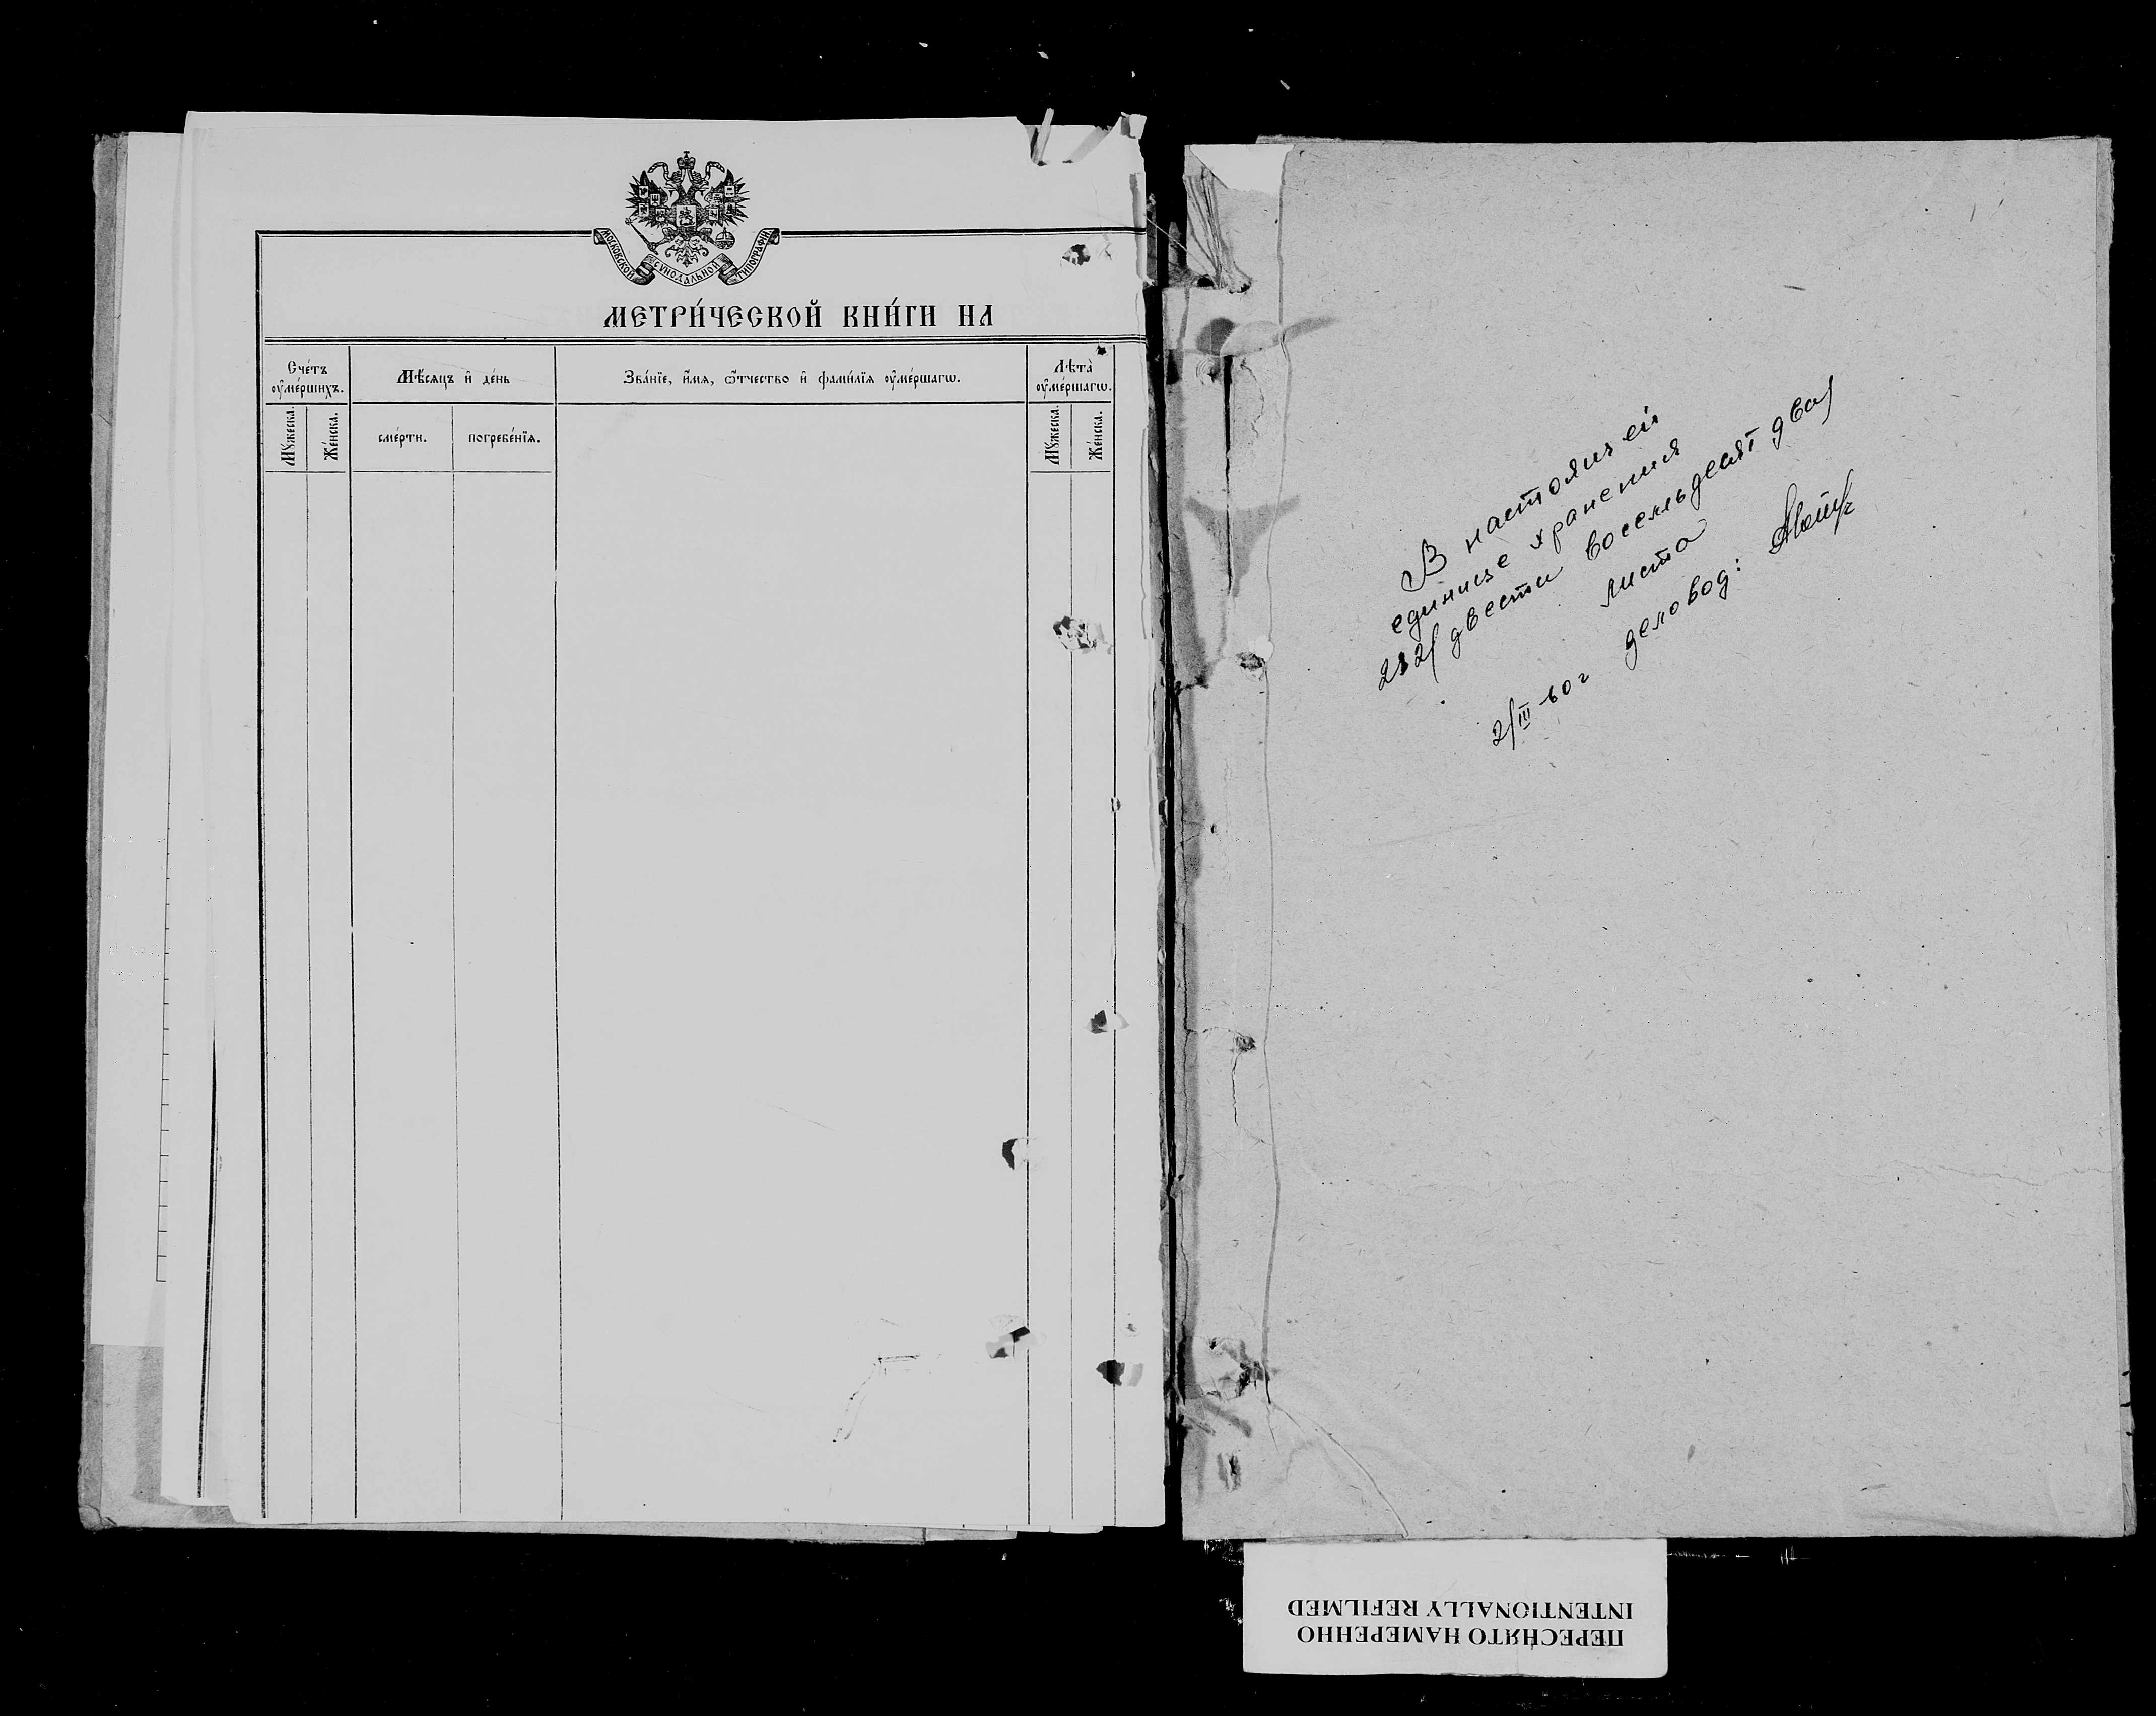 МОСКОВСКОЙ СѴНОДАЛЬНОЙ ТИПОГРАФІИ
МЕТРИ́ЧЕСКОЙ КНИ́ГИ НА
Сче́тъ
оу҆ме́ршихъ.
Мѣ́сяцъ и҆ де́нь
Зва́нїе, и҆́мя, ѻ҆́тчество и҆ фами́лїя оу҆ме́ршагѡ.
Лѣта̀
оу҆ме́ршагѡ.
Мꙋ́жеска.
Же́нска.
сме́рти.
погребе́нїя.
Мꙋ́жеска.
Же́нска.
В настоящей
единице хранения
282/ двести восемьдесят два/
листа
2/III-60г деловод:
ПЕРЕСНЯТО НАМЕРЕННО
INTENTIONALLY REFILMED